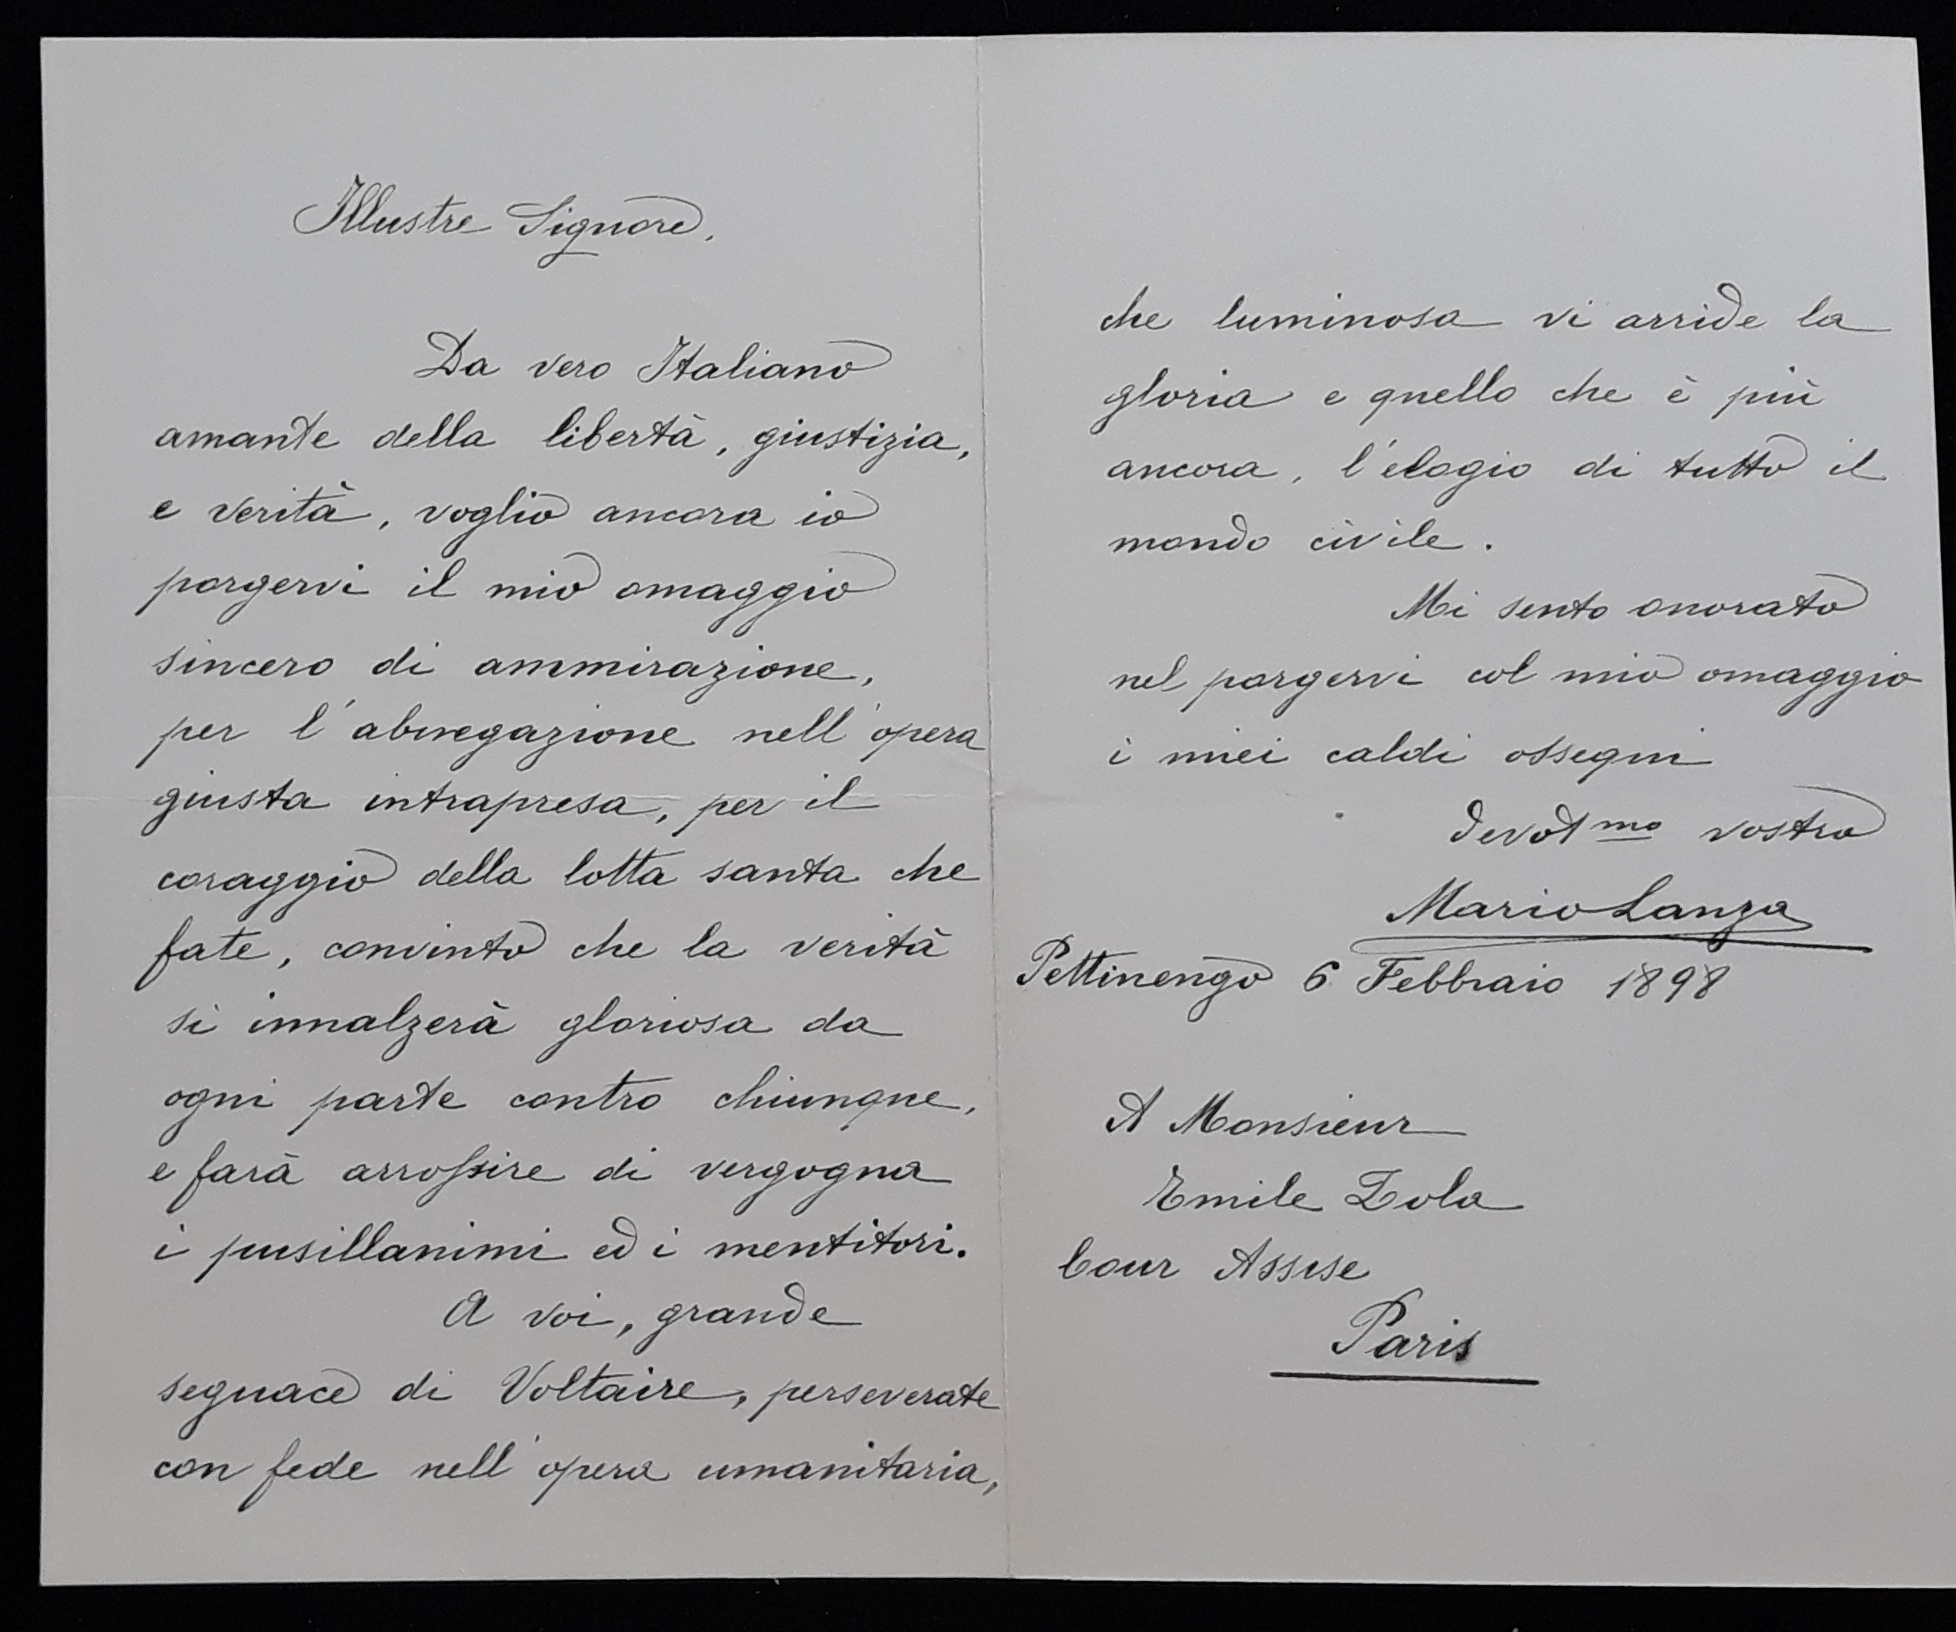 Illustre Signore,
Da vero Italiano
amante della libertà, giustizia,
e verità, voglio ancora io
porgervi il mio omaggio
sincero di ammirazione,
per l'abnegazione nell'opera
giusta intrapresa, per il
coraggio della lotta santa che
fate, convinto che la verità
si innalzerà gloriosa da
ogni parte contro chiunque,
e farà arrossire di vergogna
i pusillanimi ed i mentitori.
A voi, grande
seguace di Voltaire, perseverate
con fede nell'opera umanitaria,
che luminosa vi arride la
gloria e quello che è più
ancora, l'elogio di tutto il
mondo civile.
Mi sento onorato
nel porgervi col mio omaggio
i miei caldi ossequi
devot mo vostro
Mario Lanza
Pettinengo 6 Febbraio 1898
A Monsieur
Emile Zola
Cour Assise
Paris